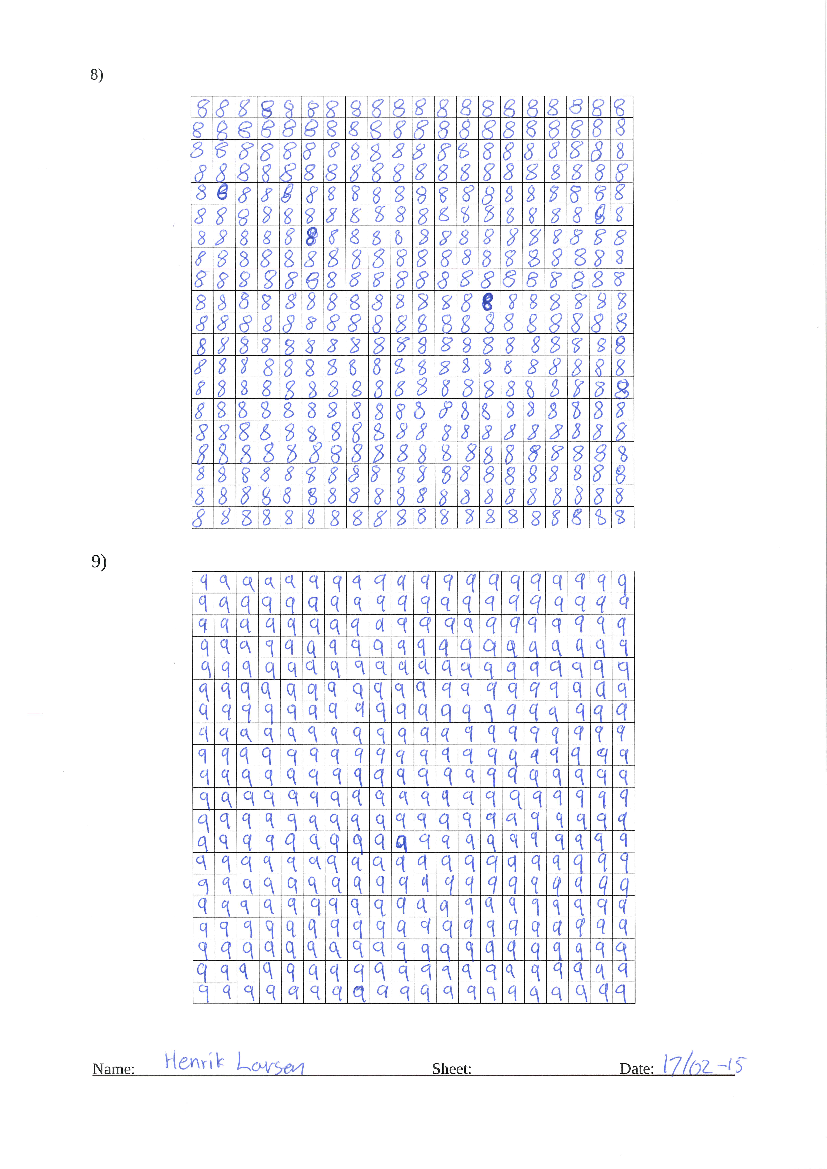 8)
8 8 8 8 8 8 8 8 8 8 8 8 8 8 8 8 8 8 8 8
8 8 8 8 8 8 8 8 8 8 8 8 8 8 8 8 8 8 8 8
8 8 8 8 8 8 8 8 8 8 8 8 8 8 8 8 8 8 8 8
8 8 8 8 8 8 8 8 8 8 8 8 8 8 8 8 8 8 8 8
8 8 8 8 8 8 8 8 8 8 8 8 8 8 8 8 8 8 8 8
8 8 8 8 8 8 8 8 8 8 8 8 8 8 8 8 8 8 8 8
8 8 8 8 8 8 8 8 8 8 8 8 8 8 8 8 8 8 8 8
8 8 8 8 8 8 8 8 8 8 8 8 8 8 8 8 8 8 8 8
8 8 8 8 8 8 8 8 8 8 8 8 8 8 8 8 8 8 8 8
8 8 8 8 8 8 8 8 8 8 8 8 8 8 8 8 8 8 8 8
8 8 8 8 8 8 8 8 8 8 8 8 8 8 8 8 8 8 8 8
8 8 8 8 8 8 8 8 8 8 8 8 8 8 8 8 8 8 8 8
8 8 8 8 8 8 8 8 8 8 8 8 8 8 8 8 8 8 8 8
8 8 8 8 8 8 8 8 8 8 8 8 8 8 8 8 8 8 8 8
8 8 8 8 8 8 8 8 8 8 8 8 8 8 8 8 8 8 8 8
8 8 8 8 8 8 8 8 8 8 8 8 8 8 8 8 8 8 8 8
8 8 8 8 8 8 8 8 8 8 8 8 8 8 8 8 8 8 8 8
8 8 8 8 8 8 8 8 8 8 8 8 8 8 8 8 8 8 8 8
8 8 8 8 8 8 8 8 8 8 8 8 8 8 8 8 8 8 8 8
8 8 8 8 8 8 8 8 8 8 8 8 8 8 8 8 8 8 8 8
9)
9 9 9 9 9 9 9 9 9 9 9 9 9 9 9 9 9 9 9 9
9 9 9 9 9 9 9 9 9 9 9 9 9 9 9 9 9 9 9 9
9 9 9 9 9 9 9 9 9 9 9 9 9 9 9 9 9 9 9 9
9 9 9 9 9 9 9 9 9 9 9 9 9 9 9 9 9 9 9 9
9 9 9 9 9 9 9 9 9 9 9 9 9 9 9 9 9 9 9 9
9 9 9 9 9 9 9 9 9 9 9 9 9 9 9 9 9 9 9 9
9 9 9 9 9 9 9 9 9 9 9 9 9 9 9 9 9 9 9 9
9 9 9 9 9 9 9 9 9 9 9 9 9 9 9 9 9 9 9 9
9 9 9 9 9 9 9 9 9 9 9 9 9 9 9 9 9 9 9 9
9 9 9 9 9 9 9 9 9 9 9 9 9 9 9 9 9 9 9 9
9 9 9 9 9 9 9 9 9 9 9 9 9 9 9 9 9 9 9 9
9 9 9 9 9 9 9 9 9 9 9 9 9 9 9 9 9 9 9 9
9 9 9 9 9 9 9 9 9 9 9 9 9 9 9 9 9 9 9 9
9 9 9 9 9 9 9 9 9 9 9 9 9 9 9 9 9 9 9 9
9 9 9 9 9 9 9 9 9 9 9 9 9 9 9 9 9 9 9 9
9 9 9 9 9 9 9 9 9 9 9 9 9 9 9 9 9 9 9 9
9 9 9 9 9 9 9 9 9 9 9 9 9 9 9 9 9 9 9 9
9 9 9 9 9 9 9 9 9 9 9 9 9 9 9 9 9 9 9 9
9 9 9 9 9 9 9 9 9 9 9 9 9 9 9 9 9 9 9 9
9 9 9 9 9 9 9 9 9 9 9 9 9 9 9 9 9 9 9 9
Name: Henrik Larsen Sheet: Date: 17/02-15